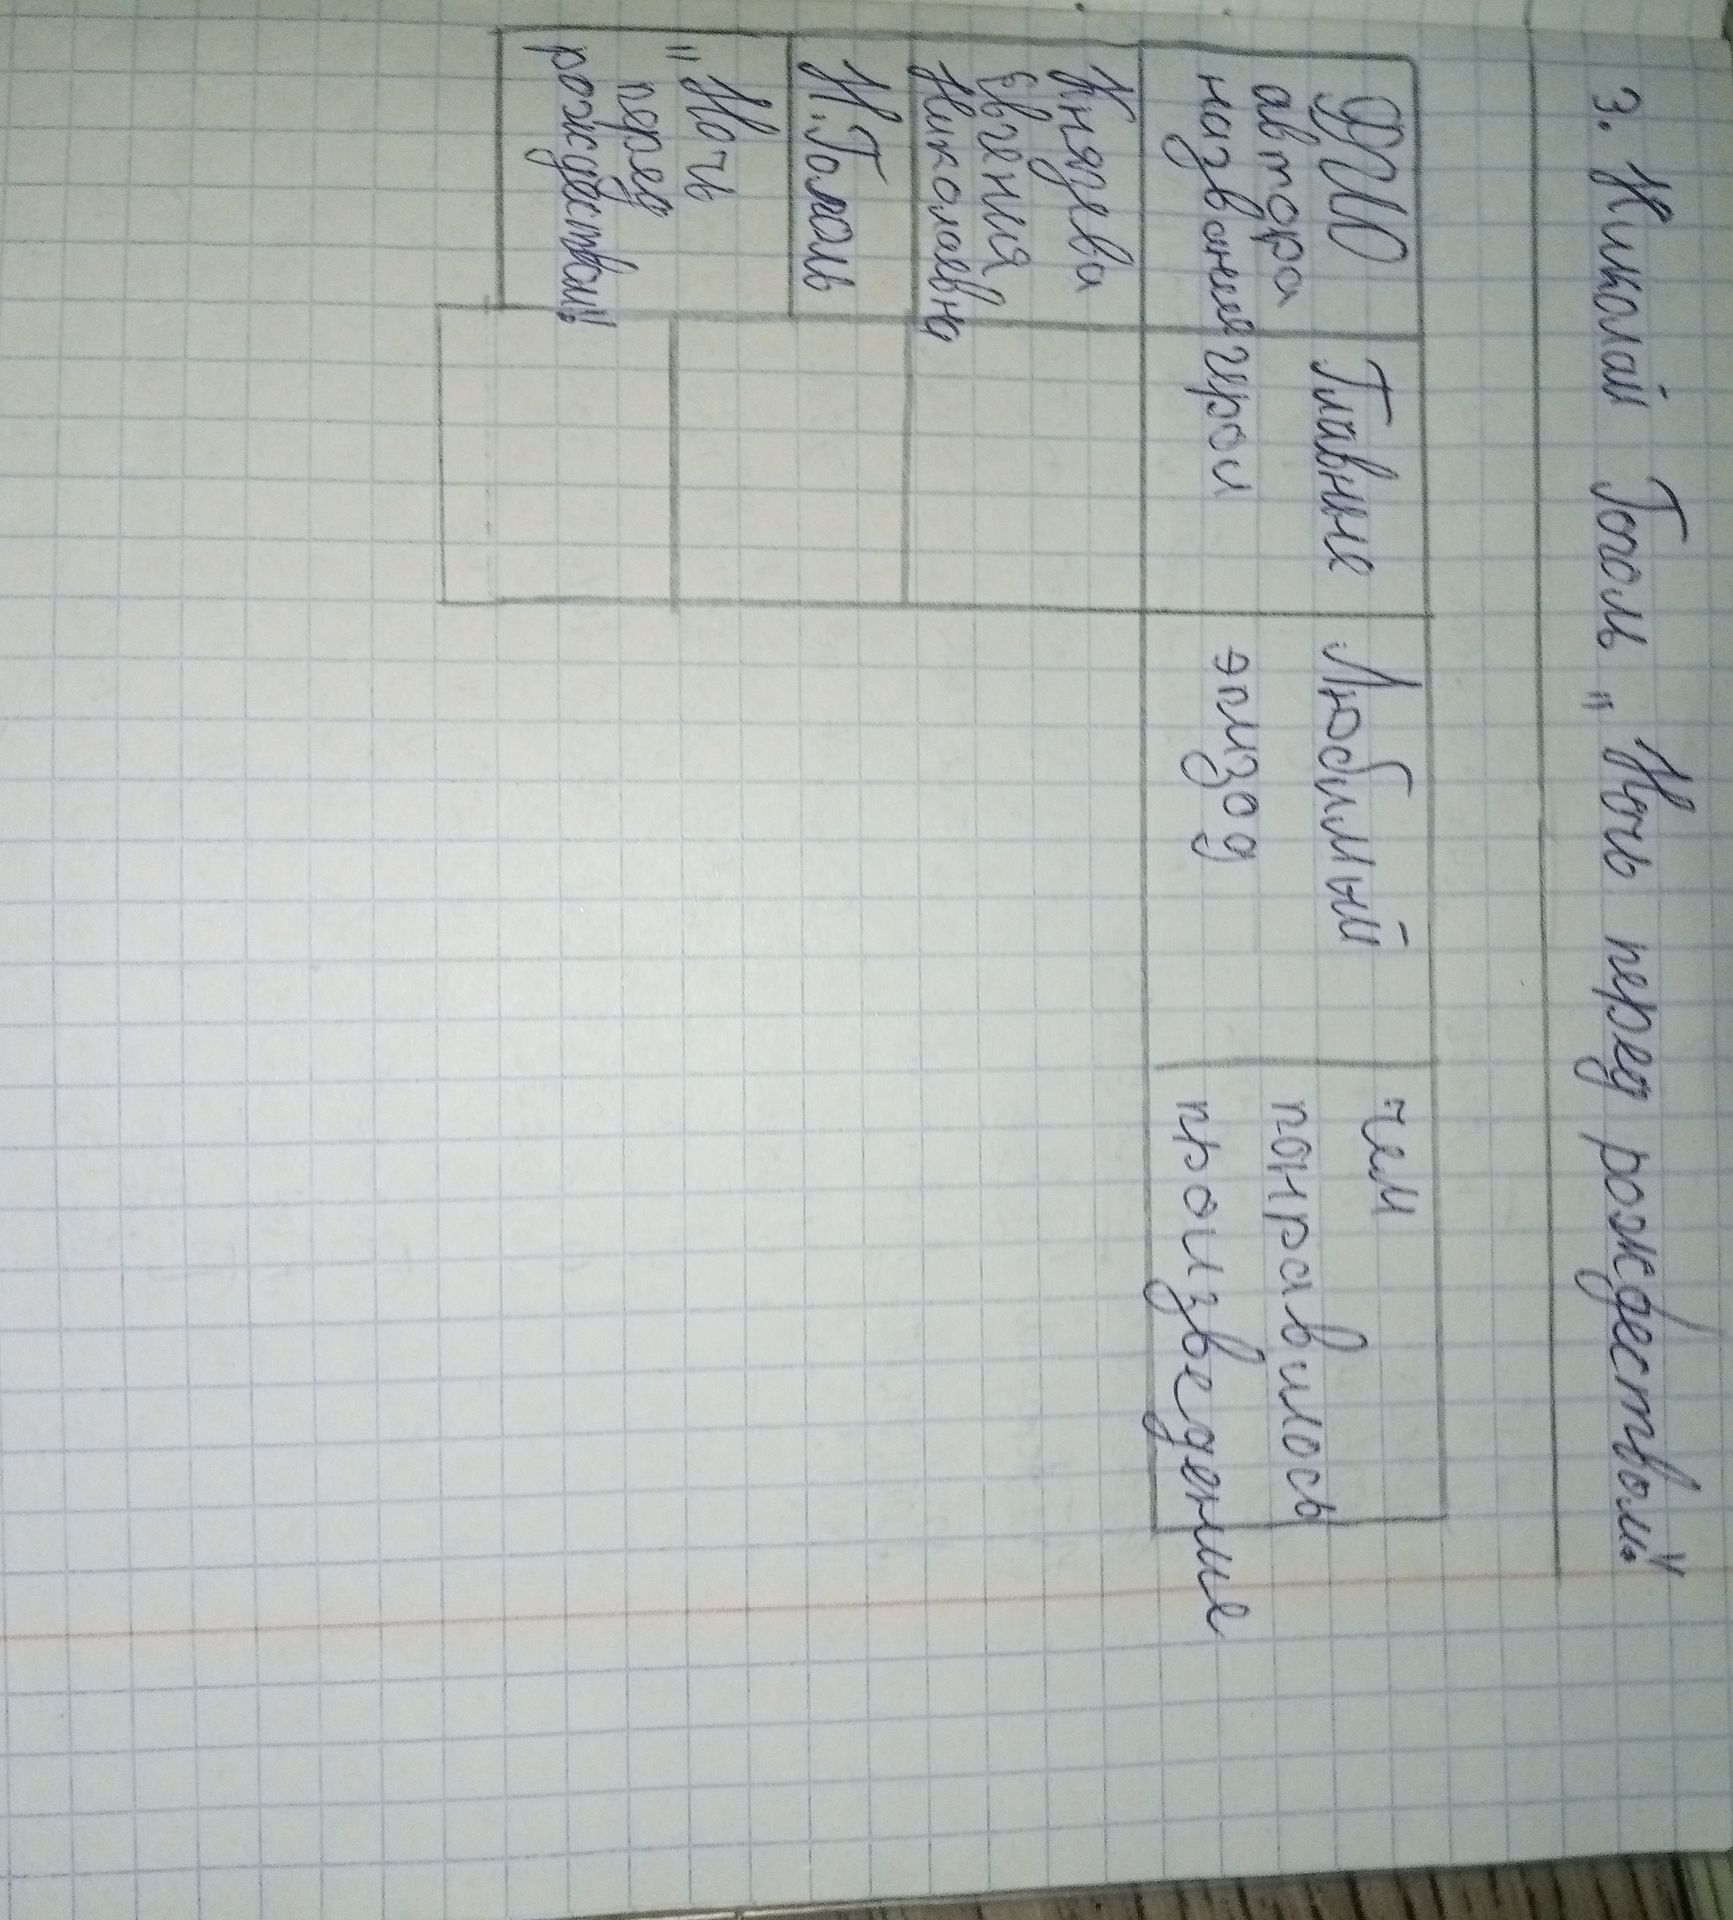 3. Николай Гоголь „Ночь перед рождеством."
ФИО
автора
название
Главные
герои
Любимый
эпизод
чем
понравилось
произведение
Князева
Евгения
Николаевна
Н. Гоголь
„Ночь
перед
рождеством"